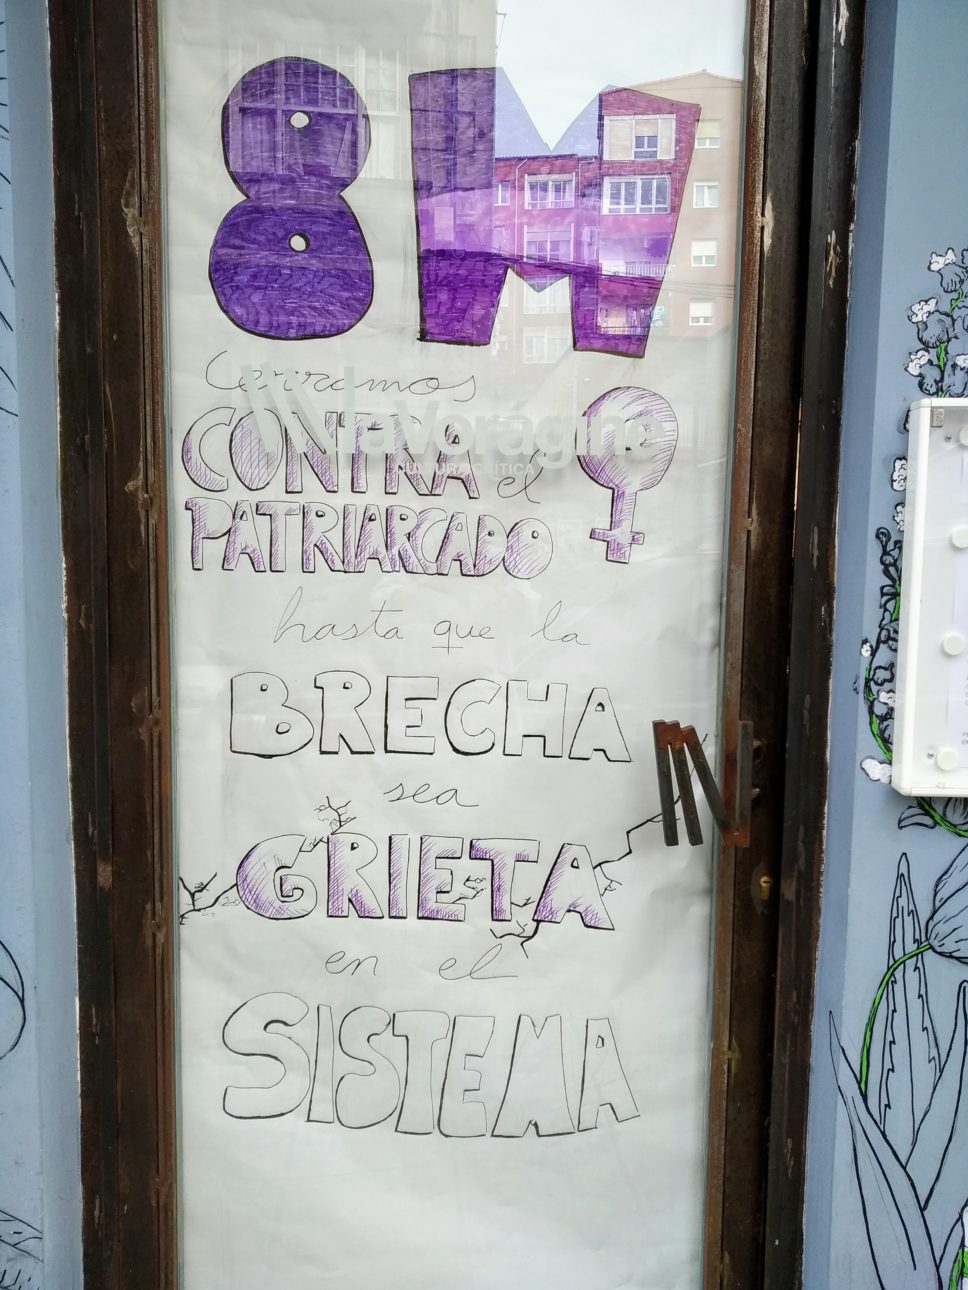 8M
Cerramos
CONTRA el
PATRIARCADO
laVoragine
CULTURA CRÍTICA
hasta que la
BRECHA
sea
GRIETA
en el
SISTEMA